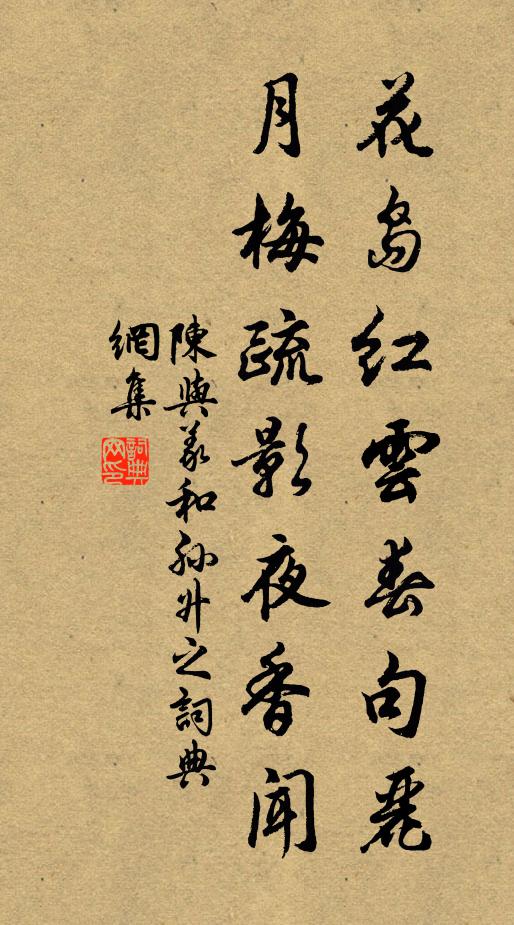 花島紅雲春句麗
月梅疏影夜香聞
陳與義和孫升之詞典
網集
詞典
网印